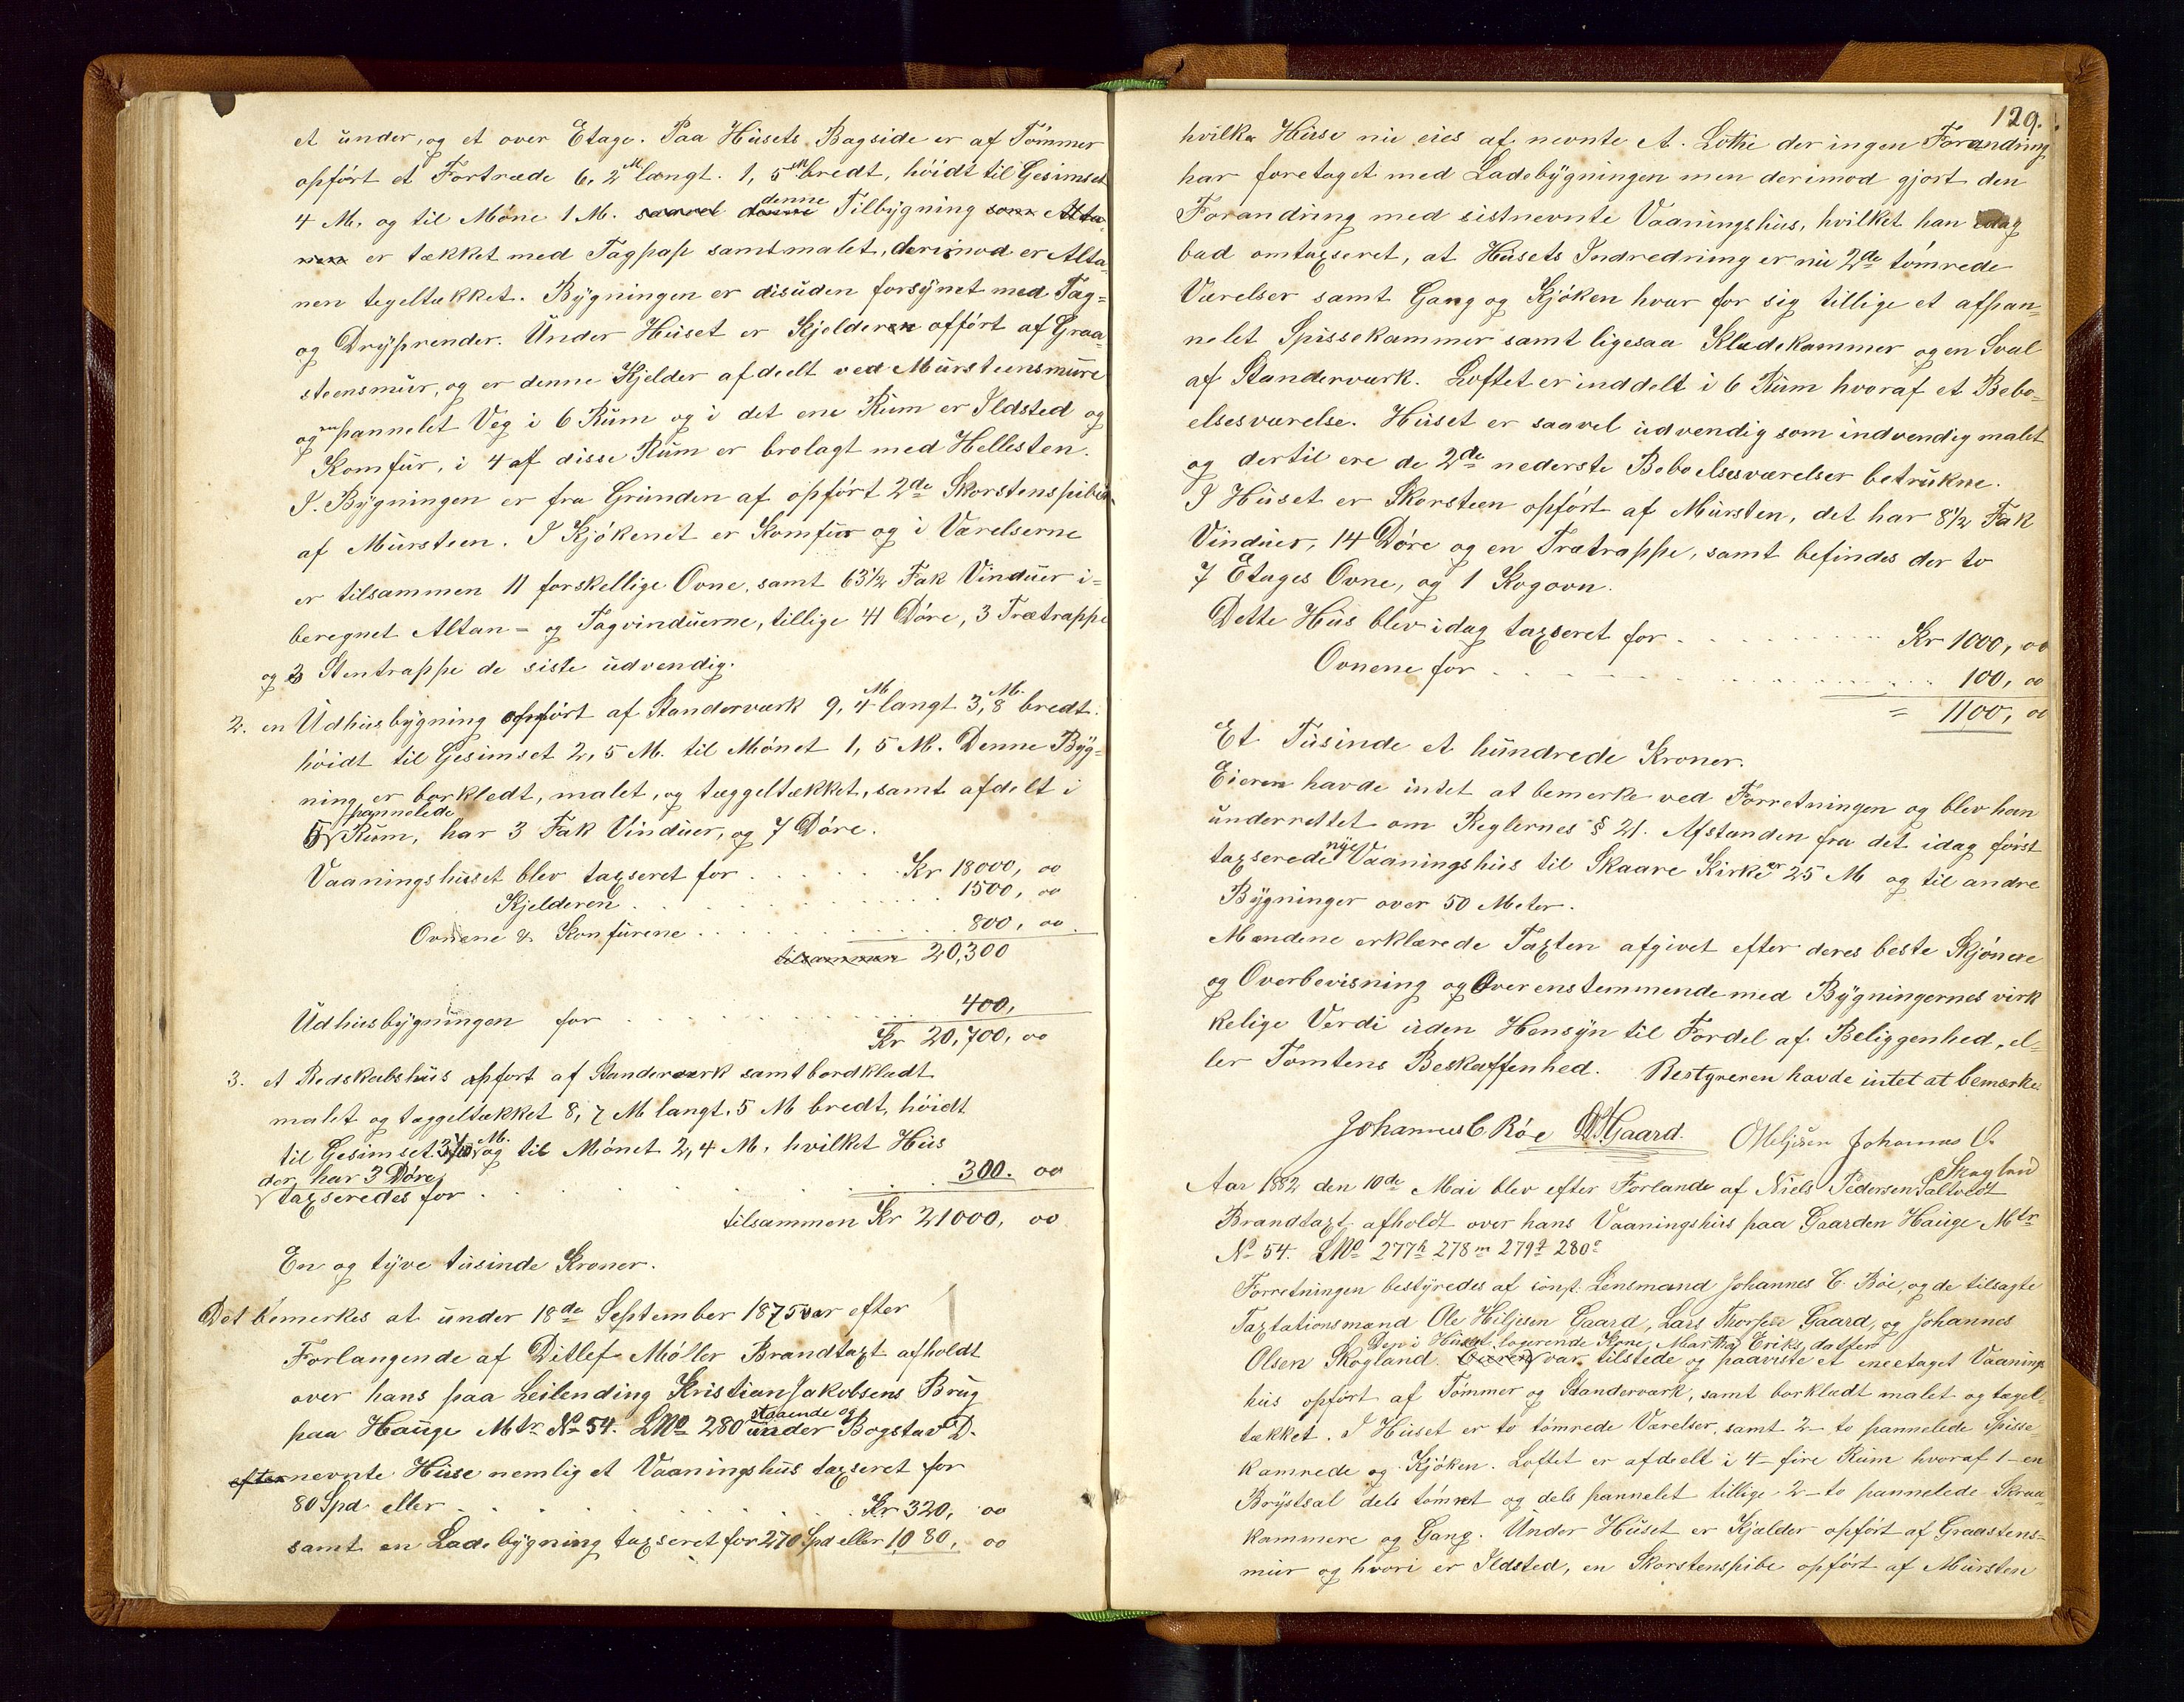 et under, og et over Etage. Paa Husets Bagside er af Tömmer
opfört et Fortræde 6, 2 M langt. 1, 5 M bredt, höidt til Gesimset
4 M. og til Möne 1 M. saavel denne denne Tilbygning som Alta-
nen er tækket med Tagpap samt malet, derimod er Alta-
nen tegeltækket. Bygningen er disuden forsynet med Tag=
og Dryprender. Under Huset er Kjelderen offört af Graa-
steensmur, og er denne Kjelder afdeelt ved Mursteensmure
og en pannelet Veg i 6 Rum og i det ene Rum er Ildsted og
Komfur, i 4 af disse Rum er brolagt med Hellesten.
I. Bygningen er fra Grunden af opfört 2de Skorstenspiber
af Mursteen. I Kjökenet er Komfur og i Værelserne
er tilsammen 11 forskellige Ovne, samt 63 1/2 Fak Vinduer i=
beregnet Altan= og Tagvinduerne, tillige 41 Döre, 3 Trætrappe
og 3 Stentrappe de siste udvendig.
2. en Udhusbygning opfört af Standerværk 9, 4 M langt 3, 8 M. bredt.
höidt til Gesimset 2, 5 M. til Mönet 1, 5 M. Denne Byg=
ning er borkledt, malet, og tæggeltækket, samt afdelt i
5 pannelede Rum, har 3 Fak Vinduer, og 7 Döre.
Vaaningshuset blev taxseret for . . . . . Kr 18000, 00
Kjelderen . . . . . . . . 1500, 00
Ovnene & Konfurene . . . . . . . 800, 00
tilsammen 20,300
Udhusbygningen for . . . . . . . 400,
Kr 20,700, 00
3. et Redskabshus opfort af Standerværk samt bordklædt
malet og tæggeltækket 8, 7 M langt, 5 M bredt, höidt
til Gesimset 3 1/10 M. og til Mönet 2, 4 M. hvilket Hus
der har 3 Döre,
taxseredes for . . . . . . . . . 300. 00
tilsammen Kr 21000, 00
En og tyve tusinde Kroner.
Det bemerkes at under 18de September 1875 var efter
Forlangende af Ditlef Möller Brandtaxt afholdt
over hans paa Leilending Kristian Jakobsens Brug
paa Hauge Mtr No 54. LNo 280 staaende og under Bogstav D.
efternevnte Huse nemlig et Vaaningshus taxseret for
80 Spd eller . . . . . . . . . Kr 320, 00
samt en Ladebygning taxseret for 270 Spd eller 1080, 00
129.
hvilke Huse nu eies af nevnte A. Lothe der ingen Forandring
har foretaget med Ladebygningen men derimod gjort den
Forandring med sistnevnte Vaaningshus, hvilket han idag
bad omtaxseret, at Husets Indredning er nu 2de tömrede
Værelser samt Gang og Kjöken hvar for sig tillige et afpan-
nelet Spissekammer samt ligesaa Kledekammer og en Sval
af Standerværk. Loftet er inddelt i 6 Rum hvoraf et Bebo-
elsesværelse. Huset er saavel udvendig som indvendig malet
og dertil ere de 2de nederste Beboelsesværelser betrukne.
I Huset er Skorsteen opfört af Mursten, det har 8 1/2 Fak
Vinduer, 14 Döre og en Trætrappe, samt befindes der to
7 Etages Ovne, og 1 Kogovn.
Dette Hus blev idag taxseret for . . . . . Kr 1000, 00
Ovnene for . . . . . . . . . . 100, 00
= 1100, 00
Et Tusinde et hundrede Kroner.
Eieren havde intet at bemerke ved Forretningen og blev han
underrettet om Reglernes § 21. Afstanden fra det idag först
taxserede nye Vaaningshus til Skaare Kirke er 25 M og til andre
Bygninger over 50 Meter.
Mændene erklærede Taxten afgivet efter deres beste Skjönere
og Overbevisning og Overenstemmende med Bygningernes virk
kelige Verdi uden Hensyn til Fordel af Beliggenhed, el-
ler Tomtens Beskaffenhed. Bestyreren havde intet at bemerke.
Johannes C Böe LTGaard. OHeljesen Johannes O.
Skogland
Aar 1882 den 10de Mai blev efter Forlande af Niels Pedersen Saltvedt
Brandtaxt afholdt over hans Vaaningshus paa Gaarden Hauge Mtr
No 54. LNo 277h 278m 279q 280e
Forretningen bestyredes af const. Lensmand Johannes C. Böe, og de tilsagte
Taxtationsmænd Ole Heljesen Gaard, Lars Thorsen Gaard, og Johannes
Den i Huset logerende Kone, Martha Eriksdatter
Olsen Skogland. Eieren var tilstede og paaviste et eneetaget Vaanings
hus opfört af Tömmer og Standerværk, samt borklædt malet og tægel-
tækket. I Huset er to tömrede Værelser, samt 2- to pannelede Spisse
kamrede og Kjöken. Loftet er afdeelt i 4- fire Rum hvoraf 1- en
Brystsal dels tömret og dels pannelet tillige 2- to pannelede Skraa-
kammere og Gang. Under Huset er Kjælder opfört af Graastens=
mur og hvori er Ildsted, en Skorstenspibe opfört af Mursten